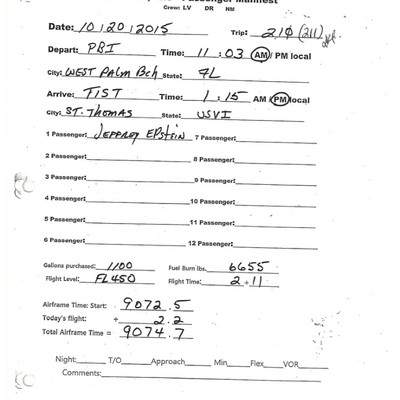 Passenger Manifest
Crew: LV DR NM
Date: 10|20|2015 Trip: 210 (211)
Depart: PBI Time: 11:03 AM / PM local
City: WEST PALM BCH State: FL
Arrive: TIST Time: 1:15 AM / PM local
City: ST. THOMAS State: USVI
1 Passenger: JEFFREY EPSTEIN 7 Passenger:
2 Passenger: 8 Passenger:
3 Passenger: 9 Passenger:
4 Passenger: 10 Passenger:
5 Passenger: 11 Passenger:
6 Passenger: 12 Passenger:
Gallons purchased: 1100 Fuel Burn lbs. 6655
Flight Level: FL450 Flight Time: 2+11
Airframe Time: Start: 9072.5
Today's flight: + 2.2
Total Airframe Time = 9074.7
Night: T/O Approach Min Flex VOR
Comments: